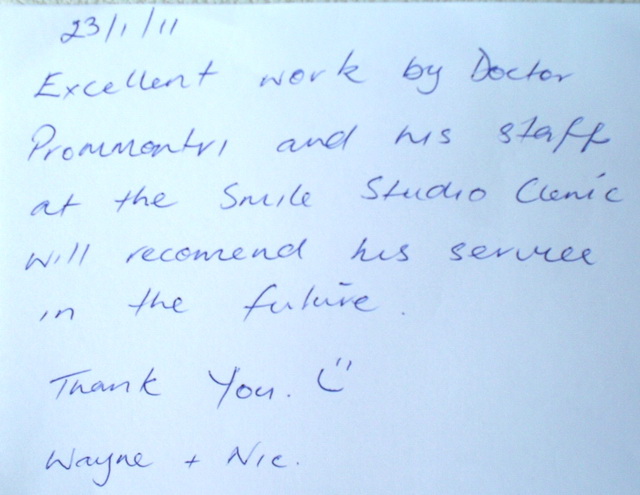 23/1/11
Excellent work by Doctor
Prommontri and his staff
at the Smile Studio Clenic
will recomend his service
in the future.
Thank You. ü
Wayne + Nic.